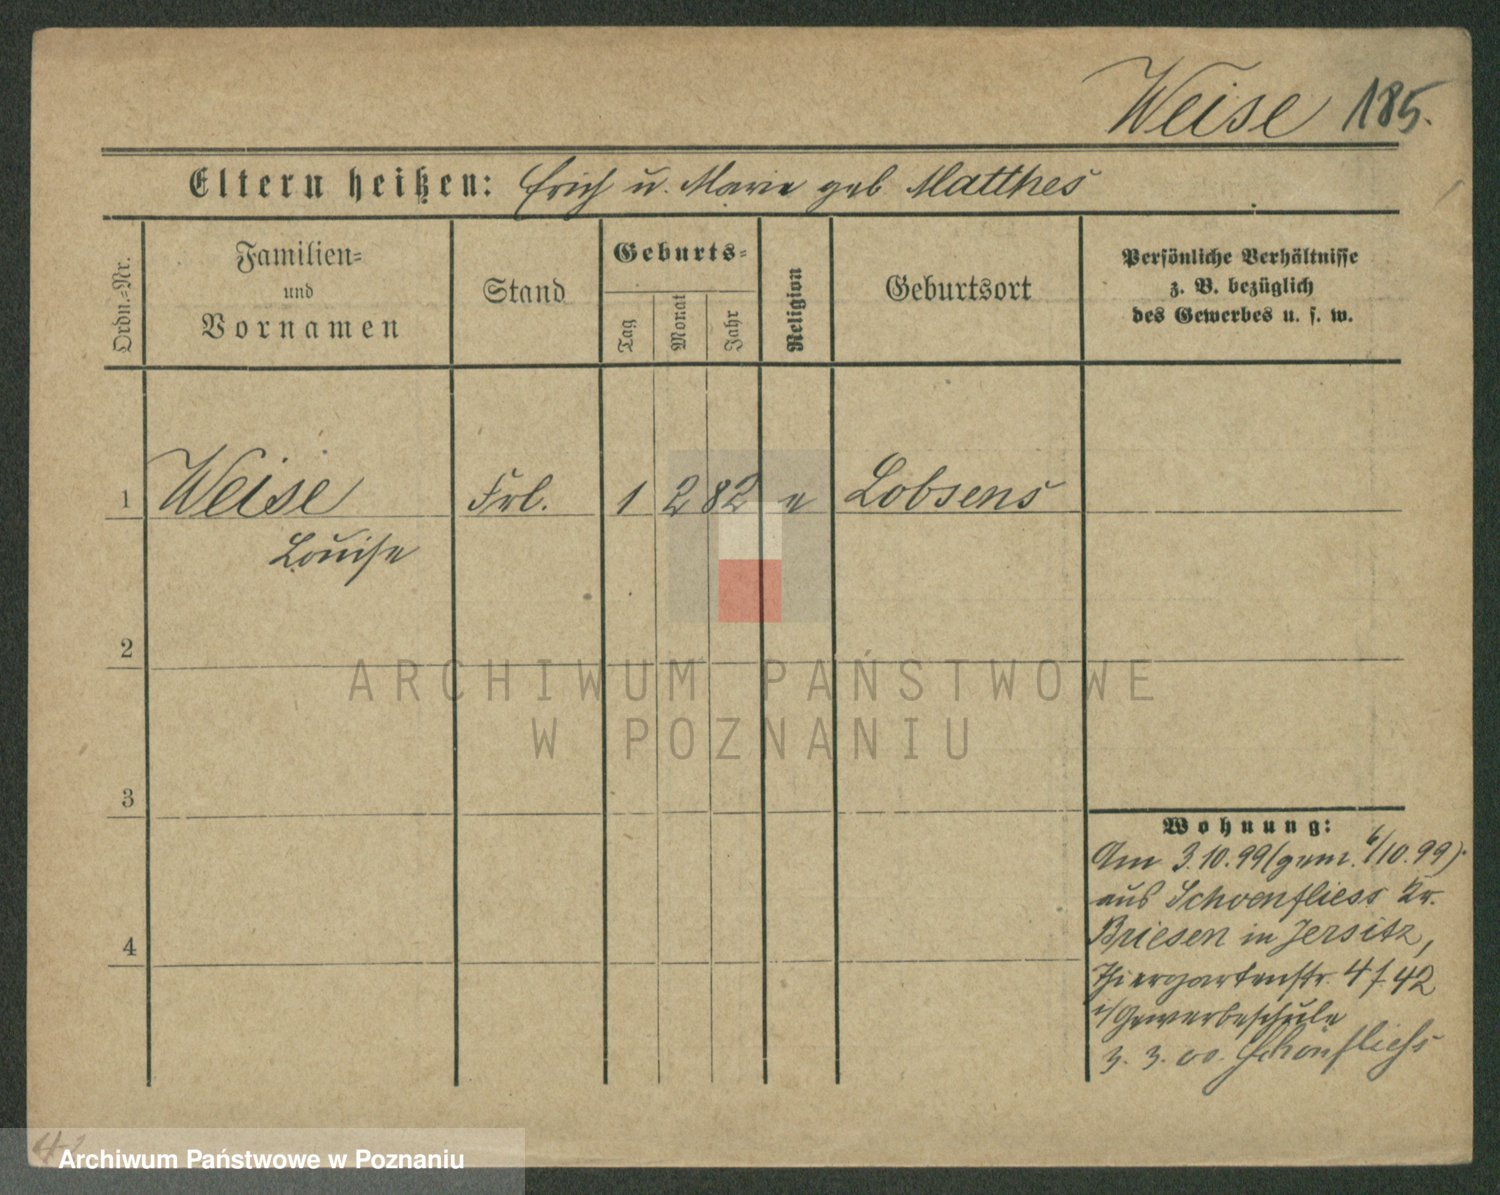 Weise 185.
Eltern heißen: Erich u. Marie geb Matthes
Ordn.-Nr.
Familien-
und
Vornamen
Stand
Geburts-
Tag
Monat
Jahr
Religion
Geburtsort
Persönliche Verhältnisse
z. B. bezüglich
des Gewerbes u. s. w.
1 Weise Frl. 1 2 82 e Lobsens
Louise
2
3
4
Wohnung:
Am 3.10.99 (gem. 6/10.99).
aus Schoenfliess Kr.
Briesen in Jersitz,
Thiergartenstr. 41/42
i/Gewerbeschule
3. 3. 00. Schönfliess
ARCHIWUM PAŃSTWOWE
W POZNANIU
Archiwum Państwowe w Poznaniu